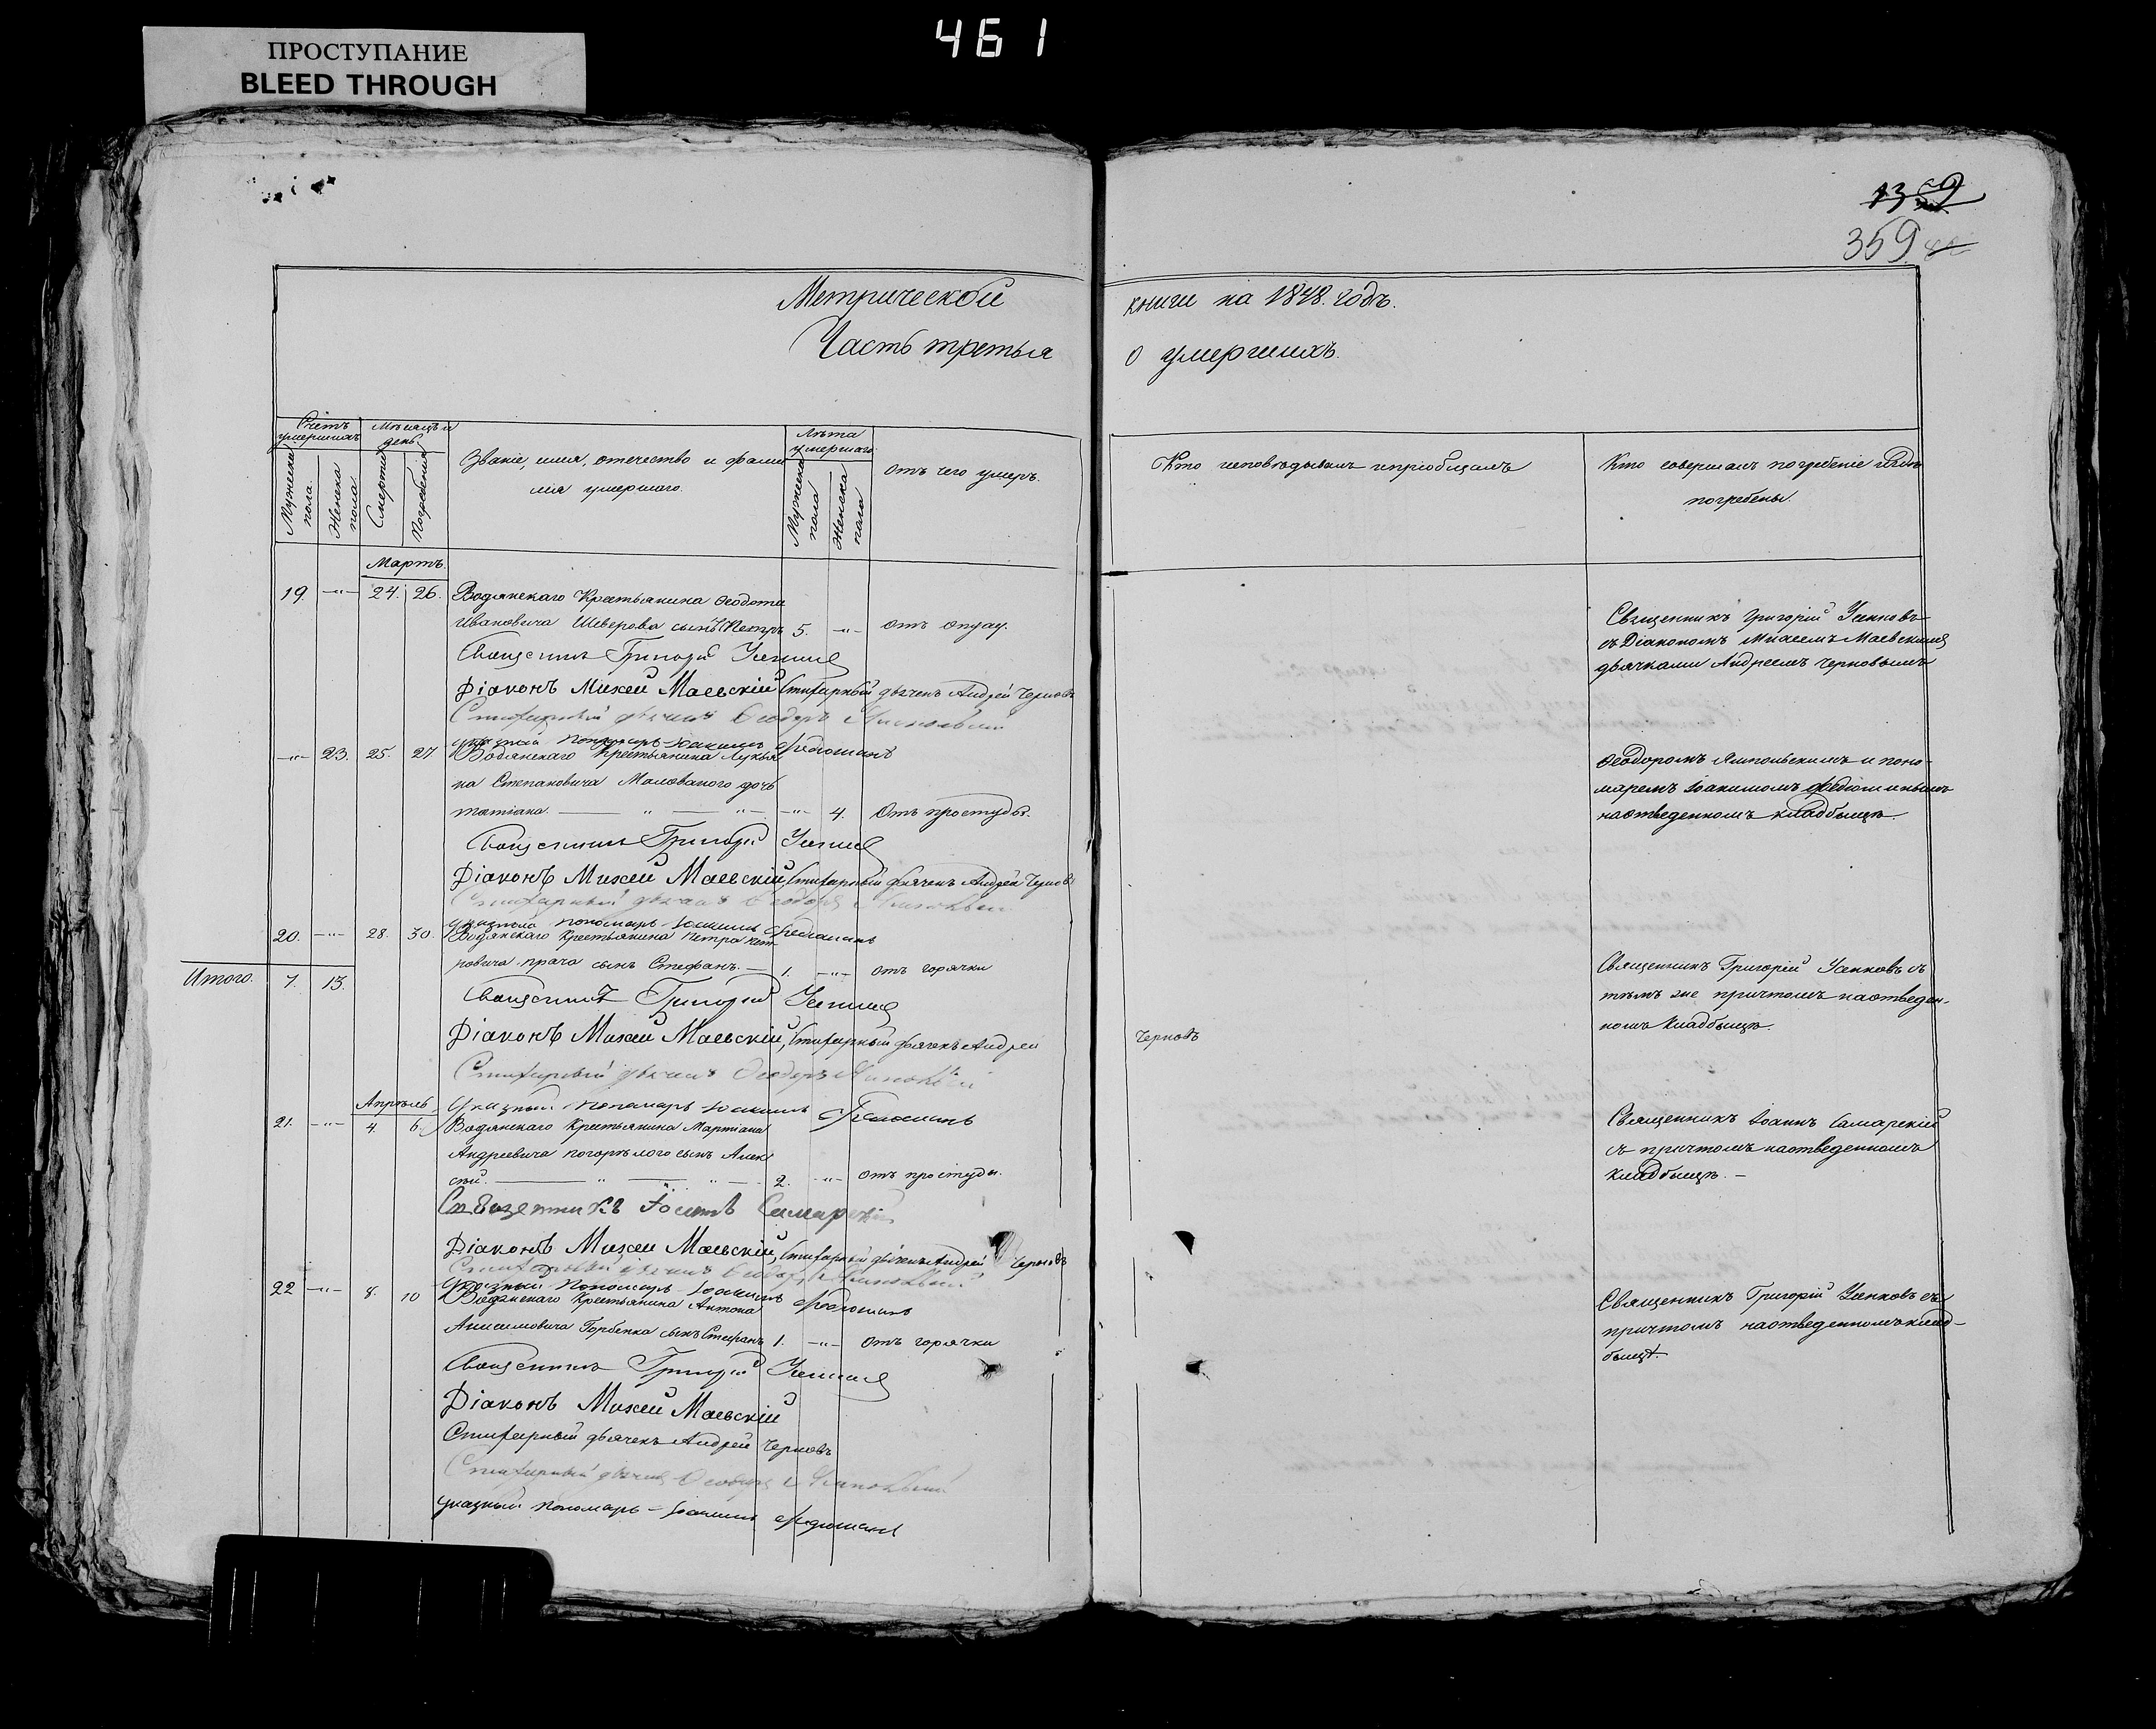 461
ПРОСТУПАНИЕ
BLEED THROUGH
1359
359
Метрической книги на 1848. годъ.
Часть третья о умершихъ.
Счетъ умершихъ
Мужеска пола.
Женска пола
Мѣсяцъ и день
Смерти
Погребенія
Званіе, имя, отечество и фами
лія умершаго.
Лѣта умершаго
Мужеска пола
Женска пола
отъ чего умеръ.
Кто исповѣдывалъ и пріобщалъ
Кто совершалъ погребеніе и гдѣ
погребены.
Мартъ.
19. —"— 24. 26. Водянскаго Крестьянина Ѳеодота
Ивановича Шеверова сынъ Петръ 5. —"— отъ опуху.
Священникъ Григорій Усенковъ
съ Діакономъ Михеемъ Маевскимъ
дьячками Андреемъ Черновымъ
Священникъ Григорій Усенковъ
Діаконъ Михей Маевскій Стихарный дьячекъ Андрей Черновъ
Стихарный дьячекъ Ѳеодоръ Ямпольскій
указный пономарь Іоакимъ Федюшинъ
—"— 23. 25. 27 Водянскаго Крестьянина Лукья
на Степановича Малованого дочь
татіана. — " — " — —"— 4. Отъ простуды.
Ѳеодоромъ Ямпольскимъ и поно-
маремъ Іоакимомъ Федюшинымъ
на отведенномъ кладбищѣ.
Священникъ Григорій Усенковъ
Діаконъ Михей Маевскій, Стихарный дьячекъ Андрей Черновъ
Стихарный дьячекъ Ѳеодоръ Ямпольскій
указный пономарь Іоакимъ Федюшинъ
20. —"— 28. 30. Водянскаго Крестьянина Петра Пет
ровича прача сынъ Стефанъ. — 1. —"— отъ горячки
Итого. 7. 13.
Священникъ Григорій Усенковъ съ
тѣмъ же причтомъ на отведен-
номъ Кладбищѣ.
Священникъ Григорій Усенковъ
Діаконъ Михей Маевскій, Стихарный дьячекъ Андрей Черновъ
Стихарный дьячекъ Ѳеодоръ Ямпольскій
Указный пономарь Іоакимъ Федюшинъ
Апрѣль
21. —"— 4. 6. Водянскаго Крестьянина Мартіана
Андреевича погорѣлого сынъ Алек
сѣй. — " — " — 2. —"— отъ простуды.
Священникъ Іоаннъ Самарскій
съ причтомъ на отведенномъ
Кладбищѣ. —
Священникъ Іоаннъ Самарскій
Діаконъ Михей Маевскій, Стихарный дьячекъ Андрей Черновъ
Стихарный дьячекъ Ѳеодоръ Ямпольскій
Указный Пономарь Іоакимъ Федюшинъ
22 —"— 8. 10 Водянскаго Крестьянина Антона
Анисимовича Горбенка сынъ Стефанъ 1. —"— отъ горячки
Священникъ Григорій Усенковъ съ
причтомъ на отведенномъ клад-
бищѣ.
Священникъ Григорій Усенковъ
Діаконъ Михей Маевскій
Стихарный дьячекъ Андрей Черновъ
Стихарный дьячекъ Ѳеодоръ Ямпольскій
указный пономарь — Іоакимъ Федюшинъ